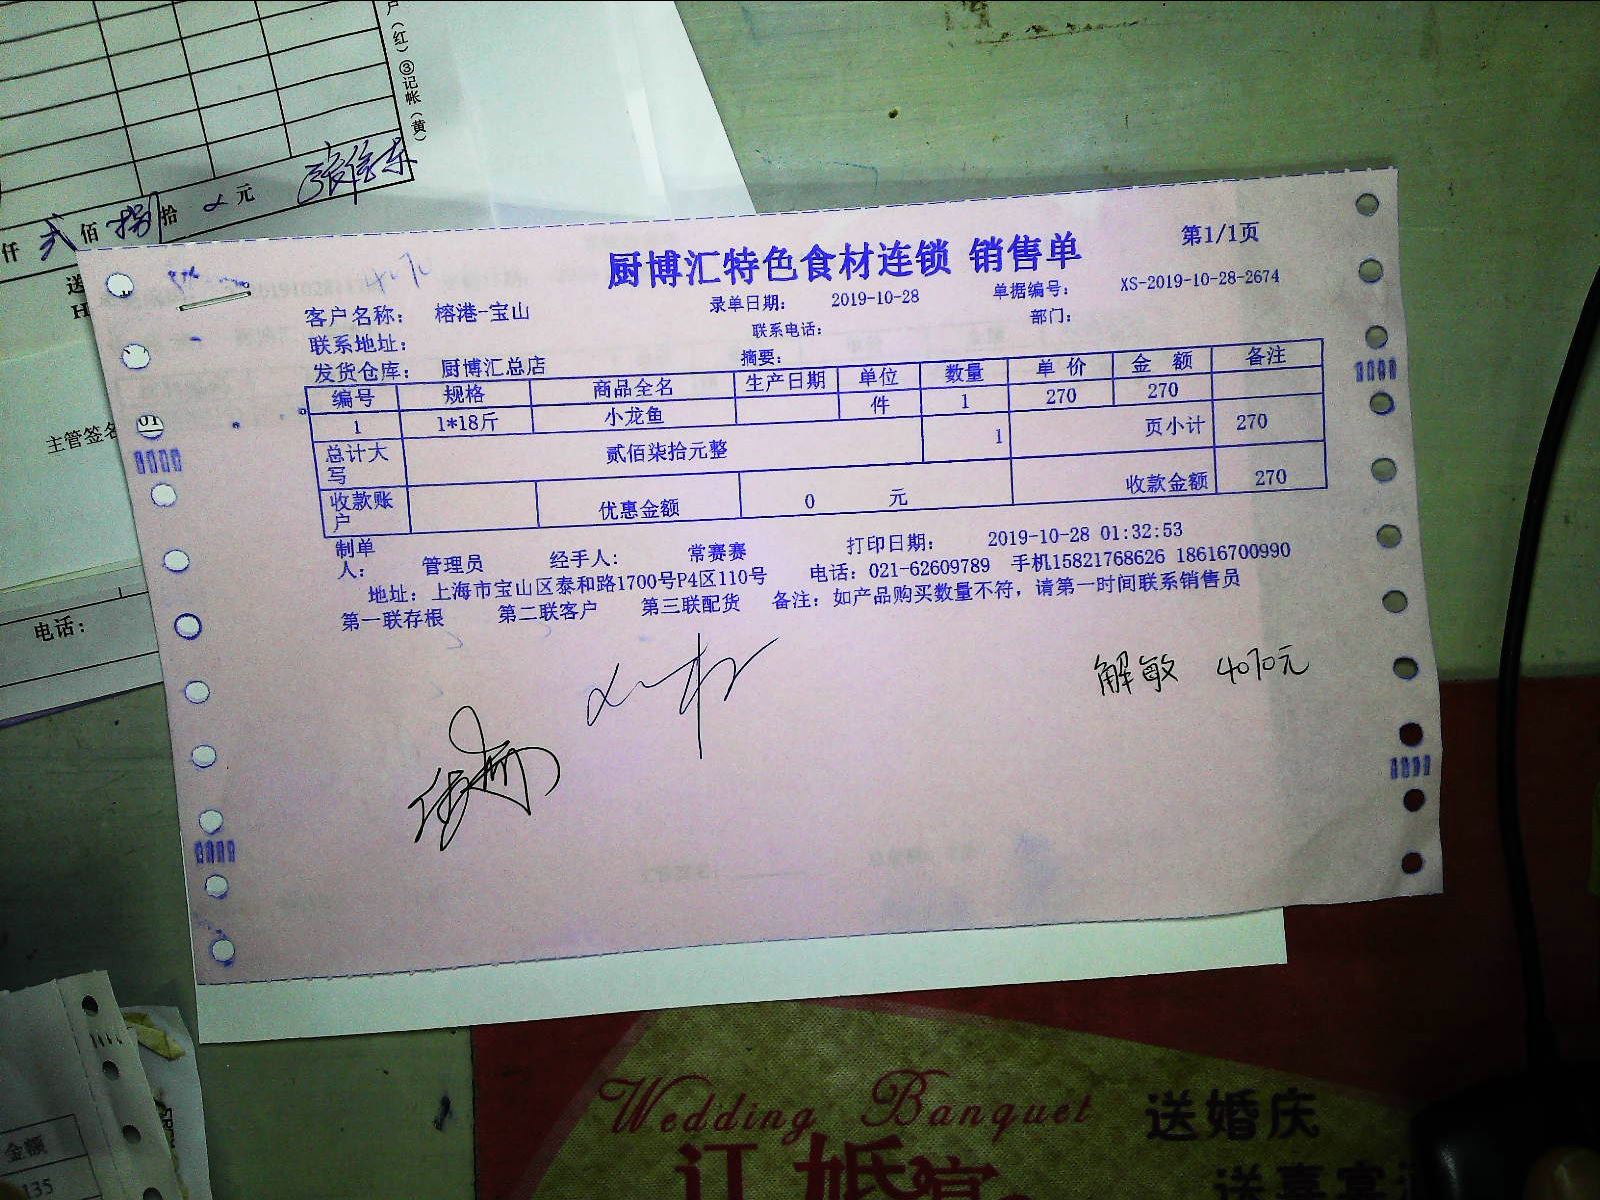 户（红）③记帐（黄）
仟 贰 佰 捌 拾 元
送
H
主管签名
电话：
厨博汇特色食材连锁 销售单
第1/1页
客户名称： 榕港-宝山
录单日期： 2019-10-28
单据编号： XS-2019-10-28-2674
联系地址：
联系电话：
部门：
发货仓库： 厨博汇总店
摘要：
编号 规格 商品全名 生产日期 单位 数量 单 价 金 额 备注
1 1*18斤 小龙鱼 件 1 270 270
总计大写 贰佰柒拾元整 1 页小计 270
收款账户 优惠金额 0 元 收款金额 270
制单人： 管理员 经手人： 常赛赛 打印日期： 2019-10-28 01:32:53
地址：上海市宝山区泰和路1700号P4区110号 电话：021-62609789 手机15821768626 18616700990
第一联存根 第二联客户 第三联配货 备注：如产品购买数量不符，请第一时间联系销售员
解敏 4070元
01
金额
135
Wedding Banquet
送婚庆
订婚宴
送喜宴